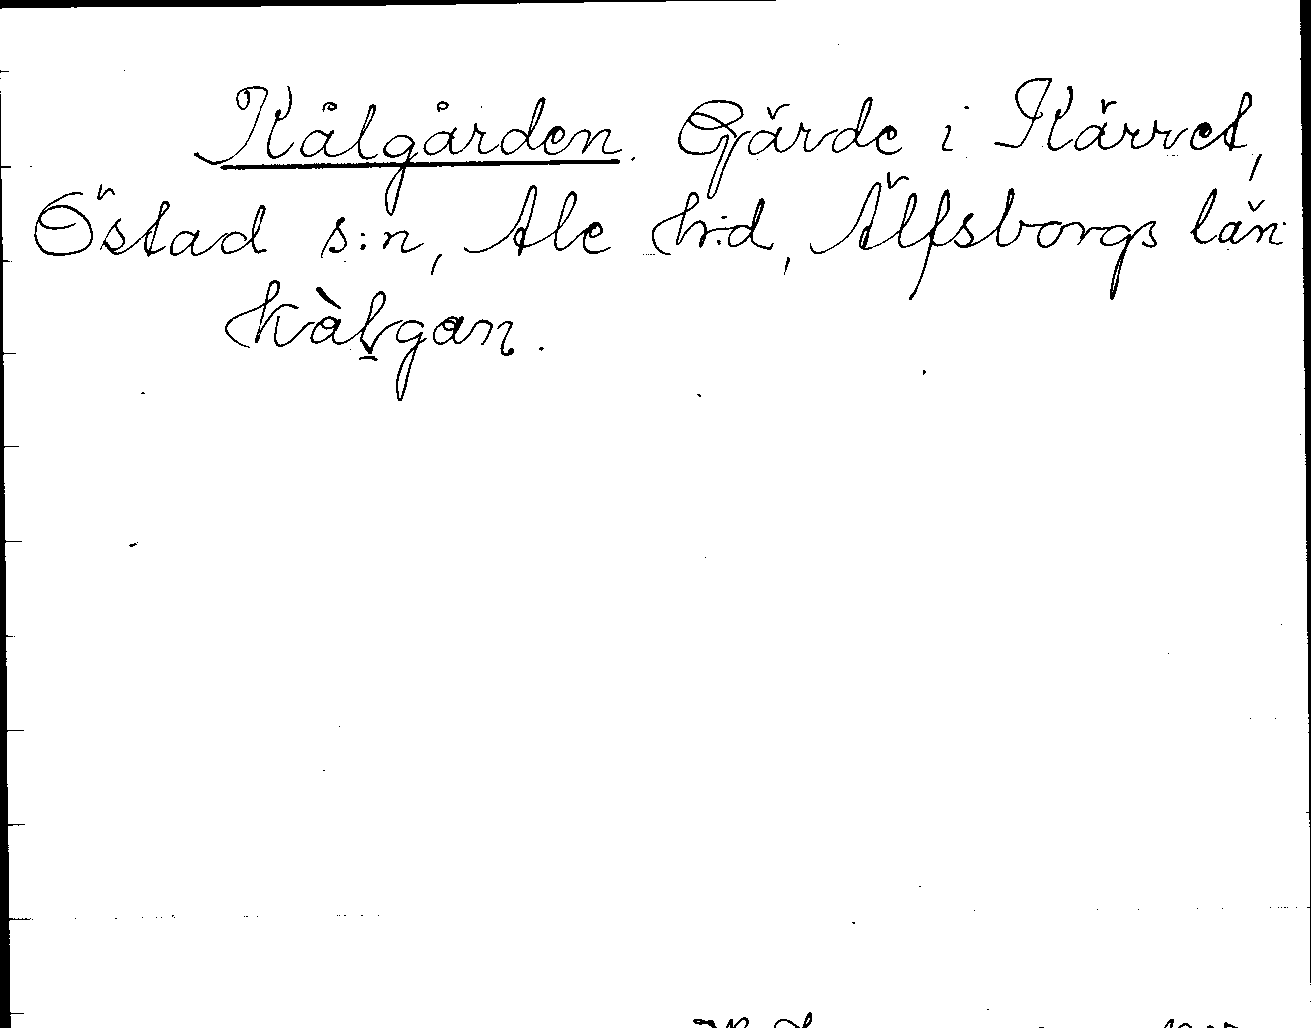 Kålgården. Gärde i Kärret,
Östad s:n, Ale hr:d, Älfsborgs län
kàlgan.